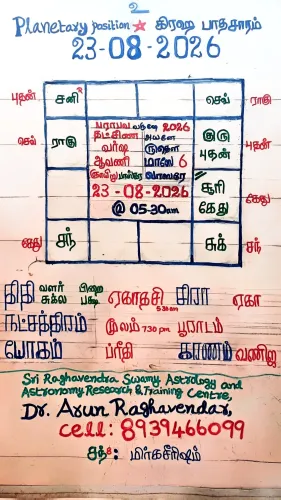 உ
Planetary position ★ கிரஹ பாதசாரம்
23-08-2026
புதன் சனி செவ் ராகு
பராபவ வருஷ 2026
தட்சிண அயனே
செவ் ராகு குரு புதன் புதன்
வர்ஷ ருதௌ
ஆவணி மாஸே 6
23-08-2026
சூரி கேது கேது
@ 05-30am
கேது சந் சுக் சந்
திதி வளர் பிறை ஏகாதசி திரா ஏகா
சுக்ல பக்ஷ 5:38am
நட்சத்திரம் மூலம் 7:30 pm பூராடம்
யோகம் ப்ரீதி கரணம் வணிஜ
Sri Raghavendra Swamy Astrology and
Astronomy Research & Training Centre,
Dr. Arun Raghavendar,
cell: 8939466099
சத்8: மிர்கசீரிஷம்